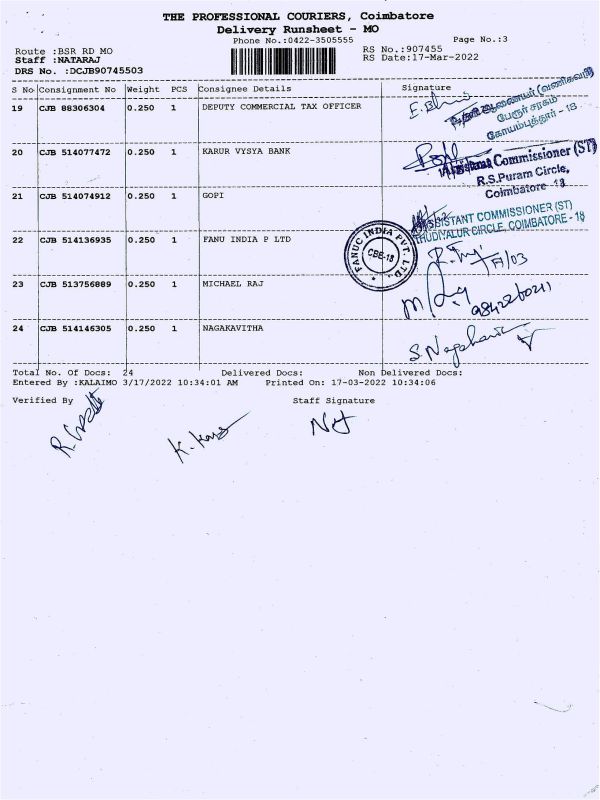 THE PROFESSIONAL COURIERS, Coimbatore
Delivery Runsheet - MO
Phone No.:0422-3505555
Page No.:3
Route :BSR RD MO
RS No.:907455
Staff :NATARAJ
RS Date:17-Mar-2022
DRS No. :DCJB90745503
S No Consignment No Weight PCS Consignee Details Signature
19 CJB 88306304 0.250 1 DEPUTY COMMERCIAL TAX OFFICER
பேரூர் சரகம்
கோயம்புத்தூர் - 18
20 CJB 514077472 0.250 1 KARUR VYSYA BANK
Assistant Commissioner (ST)
R.S.Puram Circle,
Coimbatore 18
21 CJB 514074912 0.250 1 GOPI
ASSISTANT COMMISSIONER (ST)
THUDIYALUR CIRCLE, COIMBATORE - 18
22 CJB 514136935 0.250 1 FANU INDIA P LTD
FANUC INDIA PVT. LTD.
CBE-18
23 CJB 513756889 0.250 1 MICHAEL RAJ
24 CJB 514146305 0.250 1 NAGAKAVITHA
Total No. Of Docs: 24 Delivered Docs: Non Delivered Docs:
Entered By :KALAIMO 3/17/2022 10:34:01 AM Printed On: 17-03-2022 10:34:06
Verified By Staff Signature